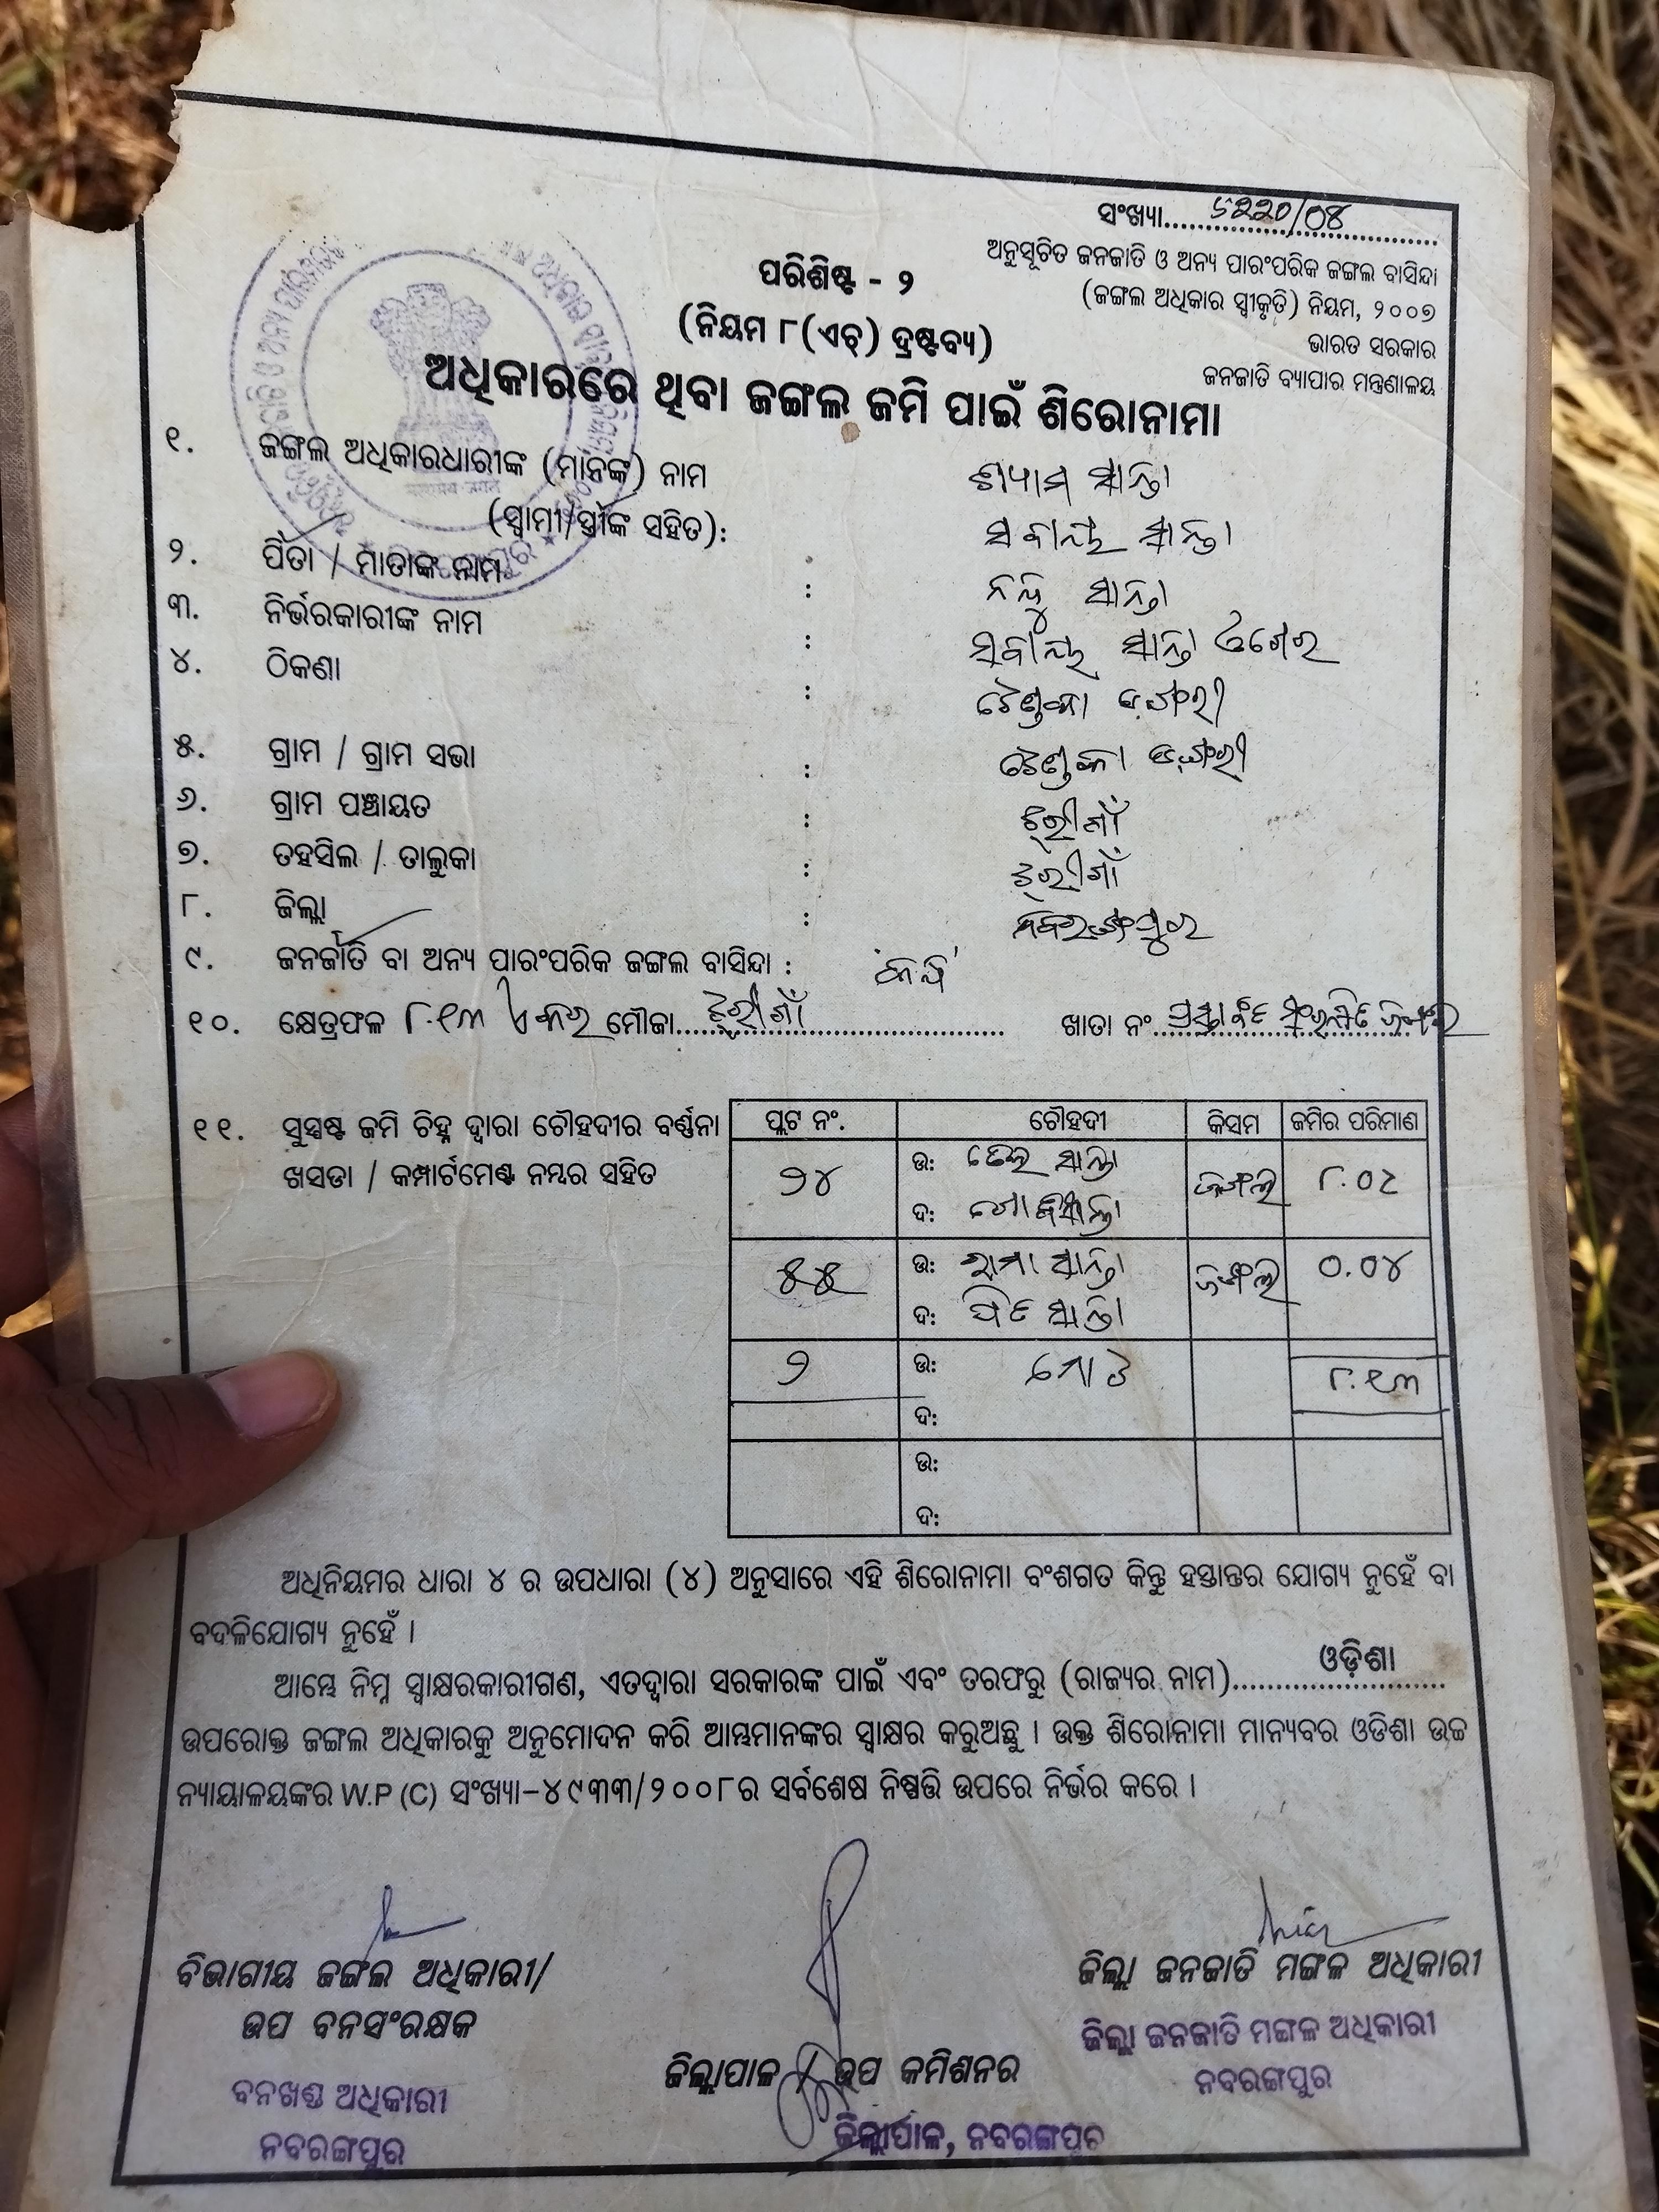 ସଂଖ୍ୟା.....୨୨୦/୦୪
ଅନୁସୂଚିତ ଜନଜାତି ଓ ଅନ୍ୟ ପାରଂପରିକ ଜଙ୍ଗଲ ବାସିନ୍ଦା
(ଜଙ୍ଗଲ ଅଧିକାର ସ୍ୱୀକୃତି) ନିୟମ, ୨୦୦୭
ଭାରତ ସରକାର
ଜନଜାତି ବ୍ୟାପାର ମନ୍ତ୍ରଣାଳୟ
ପରିଶିଷ୍ଟ - ୨
(ନିୟମ ୮(ଏଚ୍) ଦ୍ରଷ୍ଟବ୍ୟ)
ଅଧିକାରରେ ଥିବା ଜଙ୍ଗଲ ଜମି ପାଇଁ ଶିରୋନାମା
୧. ଜଙ୍ଗଲ ଅଧିକାରଧାରୀଙ୍କ (ମାନଙ୍କ) ନାମ ଶ୍ୟାମ ସାନ୍ତା
(ସ୍ୱାମୀ/ସ୍ତ୍ରୀଙ୍କ ସହିତ): ସାନ୍ତା
୨. ପିତା / ମାତାଙ୍କ ନାମ : ସାନ୍ତା
୩. ନିର୍ଭରକାରୀଙ୍କ ନାମ : ସାନ୍ତା
୪. ଠିକଣା :
୫. ଗ୍ରାମ / ଗ୍ରାମ ସଭା :
୬. ଗ୍ରାମ ପଞ୍ଚାୟତ : ଝରୀଗାଁ
୭. ତହସିଲ / ତାଲୁକା : ଝରୀଗାଁ
୮. ଜିଲ୍ଲା : ନବରଙ୍ଗପୁର
୯. ଜନଜାତି ବା ଅନ୍ୟ ପାରଂପରିକ ଜଙ୍ଗଲ ବାସିନ୍ଦା :
୧୦. କ୍ଷେତ୍ରଫଳ ୮.୧୩ ଏକର ମୌଜା.....ଝରୀଗାଁ..... ଖାତା ନଂ.....ଜଙ୍ଗଲ
୧୧. ସୁସ୍ପଷ୍ଟ ଜମି ଚିହ୍ନ ଦ୍ୱାରା ଚୌହଦୀର ବର୍ଣ୍ଣନା
ଖସଡା / କମ୍ପାର୍ଟମେଣ୍ଟ ନମ୍ବର ସହିତ
ପ୍ଲଟ ନଂ. ଚୌହଦୀ କିସମ ଜମିର ପରିମାଣ
୨୪ ଉ: ସାନ୍ତା ଜଙ୍ଗଲ
ଦ: ସାନ୍ତା
୫୫ ଉ: ରାମା ସାନ୍ତା ଜଙ୍ଗଲ ୦.୦୪
ଦ: ସାନ୍ତା
୨ ଉ: ମୋଟ ୮.୧୩
ଦ:
ଉ:
ଦ:
ଅଧିନିୟମର ଧାରା ୪ ର ଉପଧାରା (୪) ଅନୁସାରେ ଏହି ଶିରୋନାମା ବଂଶଗତ କିନ୍ତୁ ହସ୍ତାନ୍ତର ଯୋଗ୍ୟ ନୁହେଁ ବା
ବଦଳିଯୋଗ୍ୟ ନୁହେଁ ।
ଆମ୍ଭେ ନିମ୍ନ ସ୍ୱାକ୍ଷରକାରୀଗଣ, ଏତଦ୍ୱାରା ସରକାରଙ୍କ ପାଇଁ ଏବଂ ତରଫରୁ (ରାଜ୍ୟର ନାମ).....ଓଡ଼ିଶା.....
ଉପରୋକ୍ତ ଜଙ୍ଗଲ ଅଧିକାରକୁ ଅନୁମୋଦନ କରି ଆମ୍ଭମାନଙ୍କର ସ୍ୱାକ୍ଷର କରୁଅଛୁ । ଉକ୍ତ ଶିରୋନାମା ମାନ୍ୟବର ଓଡିଶା ଉଚ୍ଚ
ନ୍ୟାୟାଳୟଙ୍କର W.P (C) ସଂଖ୍ୟା-୪୯୩୩/୨୦୦୮ର ସର୍ବଶେଷ ନିଷ୍ପତ୍ତି ଉପରେ ନିର୍ଭର କରେ ।
ବିଭାଗୀୟ ଜଙ୍ଗଲ ଅଧିକାରୀ/
ଉପ ବନସଂରକ୍ଷକ
ବନଖଣ୍ଡ ଅଧିକାରୀ
ନବରଙ୍ଗପୁର
ଜିଲ୍ଲାପାଳ / ଉପ କମିଶନର
ଜିଲ୍ଲାପାଳ, ନବରଙ୍ଗପୁର
ଜିଲ୍ଲା ଜନଜାତି ମଙ୍ଗଳ ଅଧିକାରୀ
ଜିଲ୍ଲା ଜନଜାତି ମଙ୍ଗଳ ଅଧିକାରୀ
ନବରଙ୍ଗପୁର